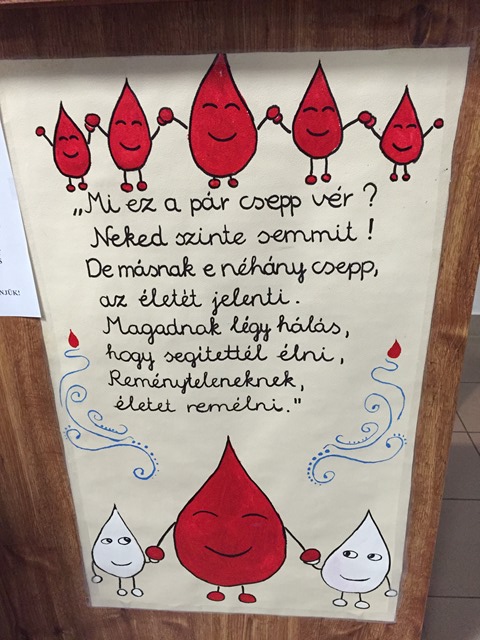 „Mi ez a pár csepp vér?
Neked szinte semmit!
De másnak e néhány csepp,
az életét jelenti.
Magadnak légy hálás,
hogy segítettél élni,
Reményteleneknek,
életet remélni."